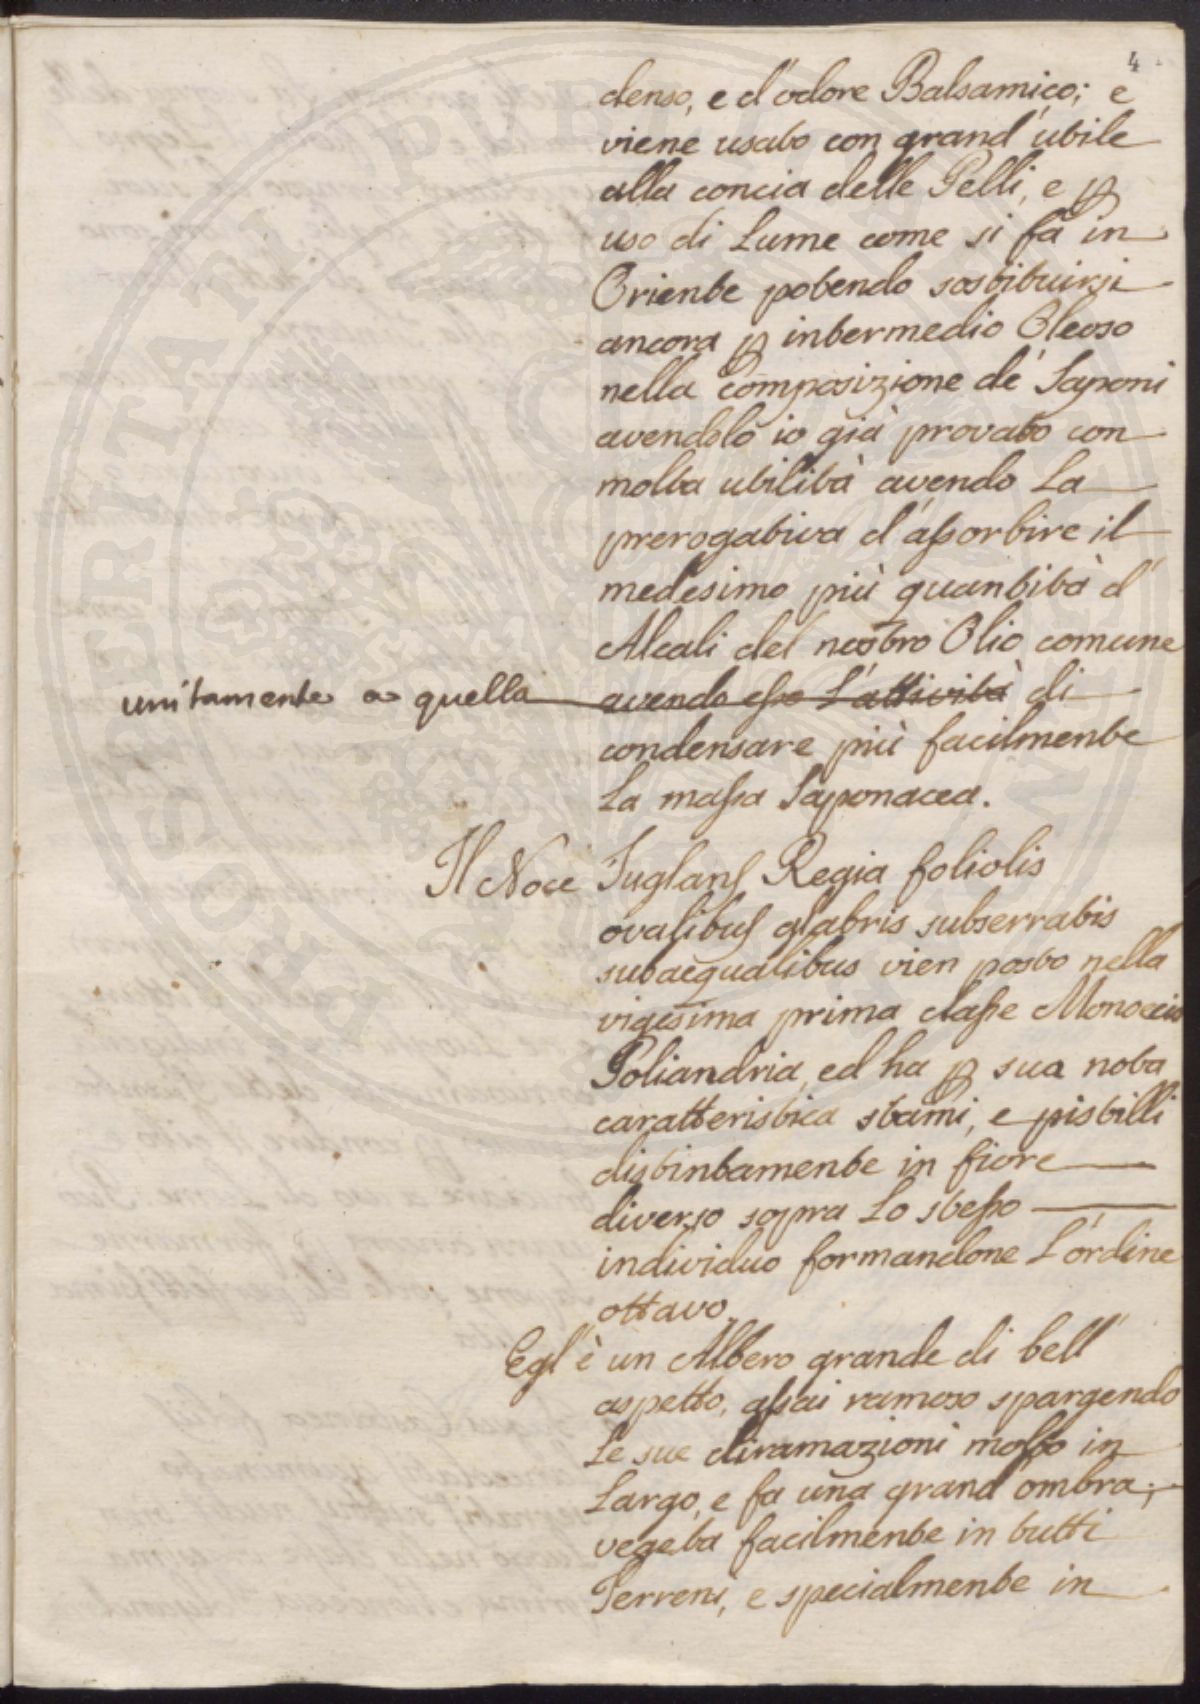 4
denso, e d'odore Balsamico; e
viene usato con grand'utile
alla concia delle Pelli, e ꝑ
uso di Lume come si fà in
Oriente potendo sostituirsi
ancora ꝑ intermedio Oleoso
nella composizione de' Saponi
avendolo io già provato con
molta utilità avendo La
prerogativa d'assorbire il
medesimo più quantità d'
Alcali del nostro Olio comune
unitamente a quella avendo esso L'attività di
condensare più facilmente
La massa Saponacea.
Il Noce Juglans Regia foliolis
ovalibus glabris subserratis
subaequalibus vien posto nella
vigesima prima classe Monoecia
Poliandria, ed ha ꝑ sua nota
caratteristica stami, e pistilli
distintamente in fiore
diverso sopra Lo stesso
individuo formandone L'ordine
ottavo.
Egl'è un Albero grande di bell'
aspetto, assai ramoso spargendo
Le sue diramazioni molto in
Largo, e fa una grand'ombra;
vegeta facilmente in tutti
Terreni, e specialmente in
PROSPERITATI PUBLICAE AUGENDAE